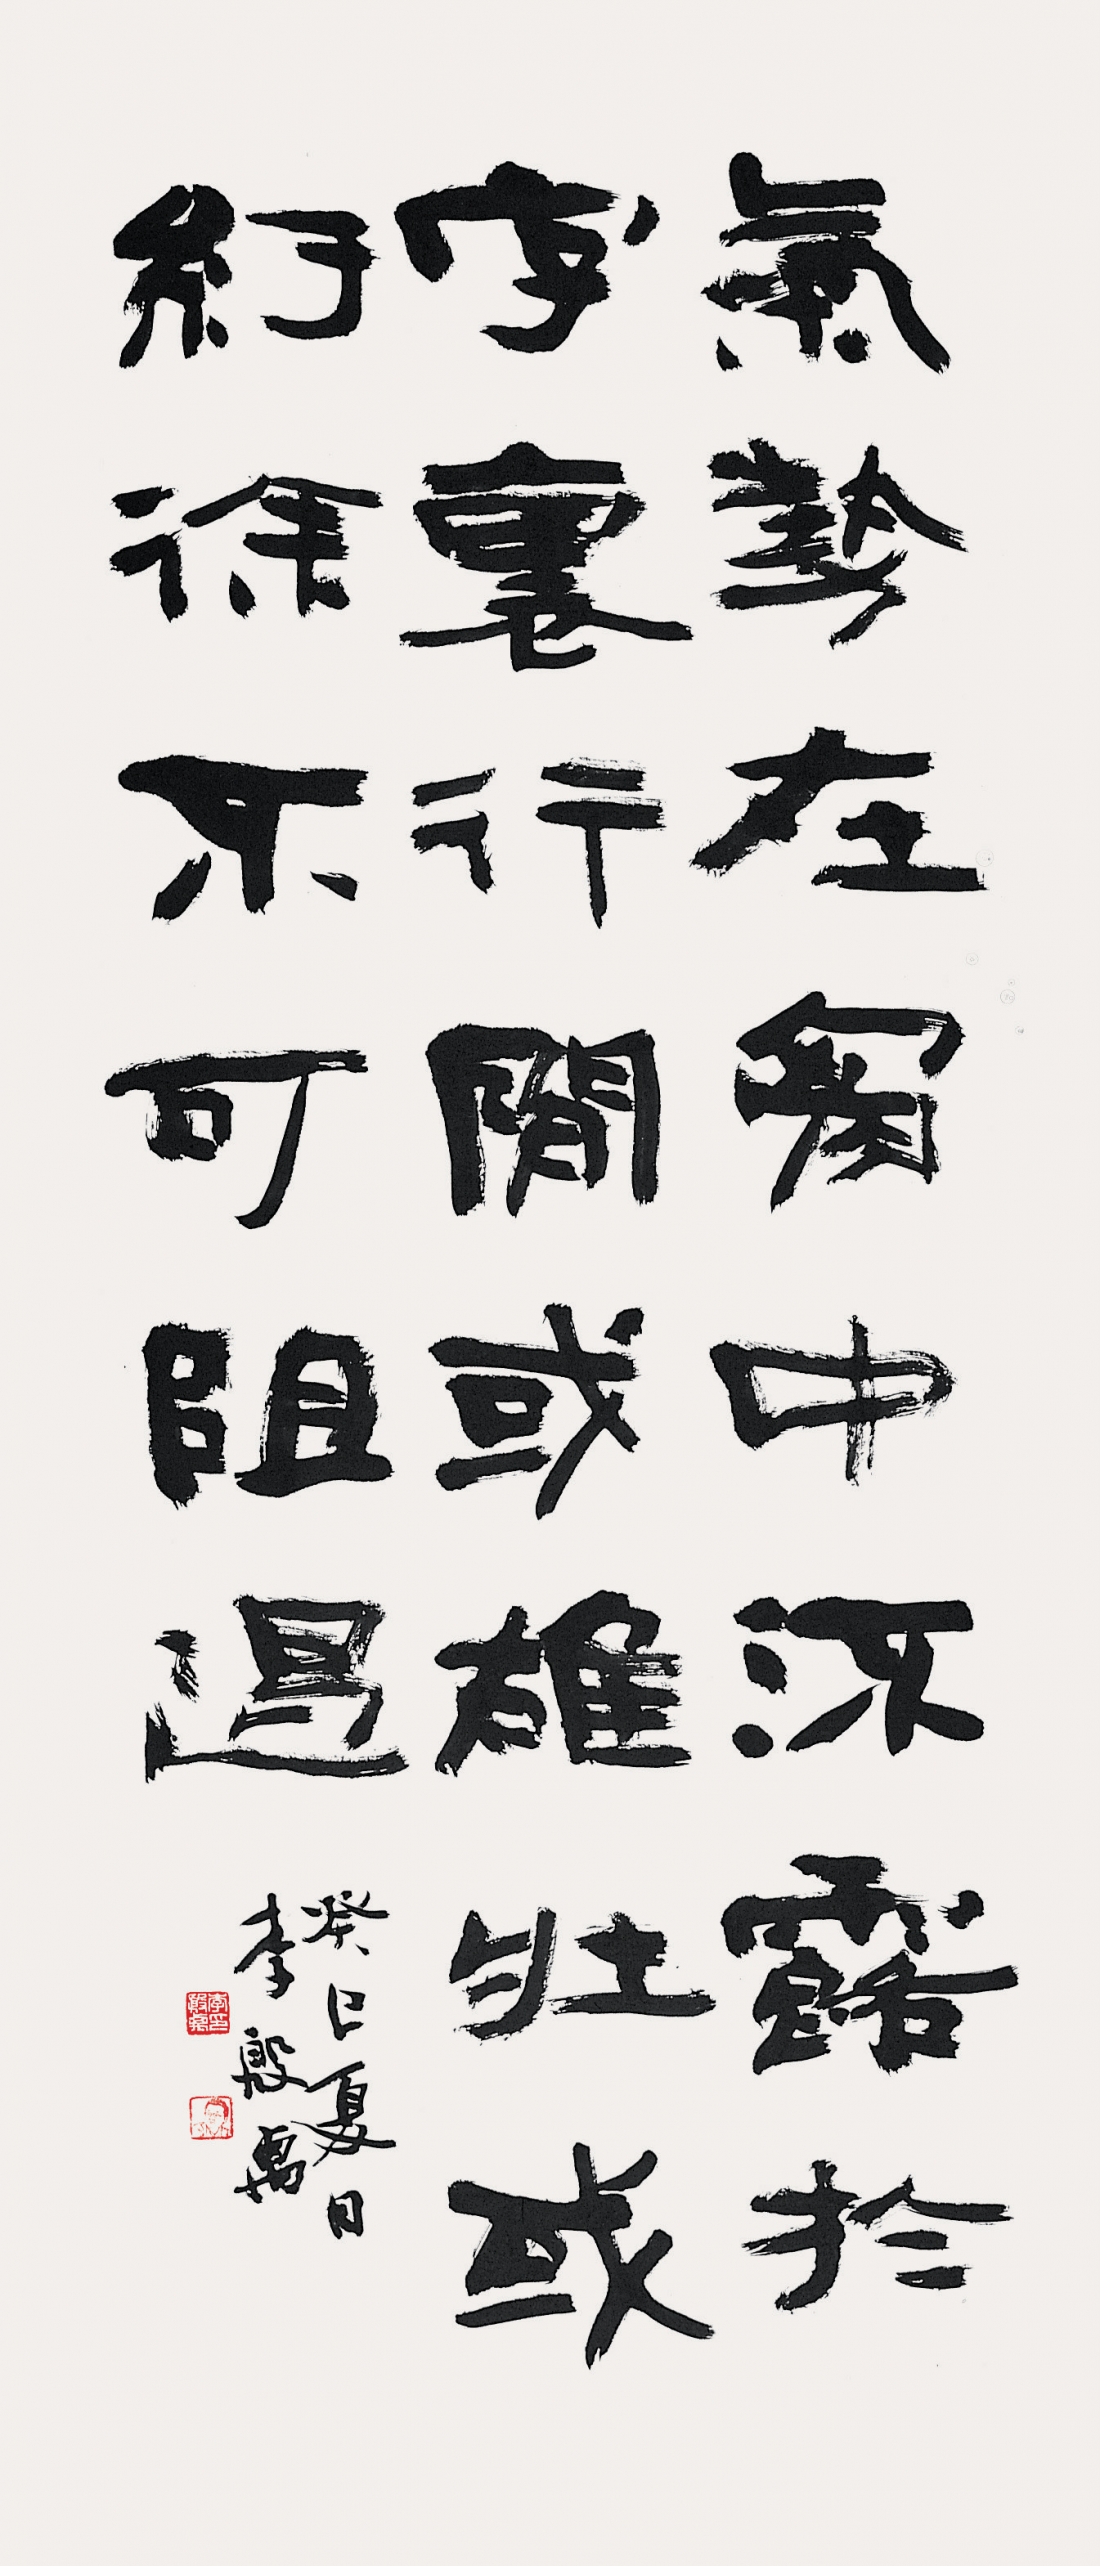 氣勢在胷中流露於
字裏行閒或雄壯或
紆徐不可阻遏
癸巳夏日
李殷